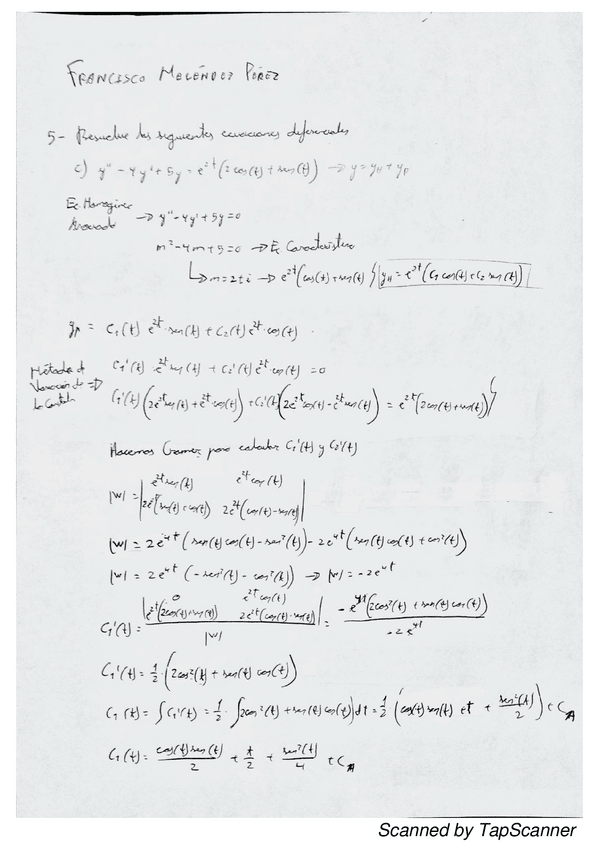 FRANCISCO MELÉNDEZ PÉREZ
5- Resuelve las siguientes ecuaciones diferenciales
c) y'' - 4y' + 5y = e^{2t}(2cos(t) + sen(t)) → y = y_H + y_p
Ec. Homogénea Asociada → y'' - 4y' + 5y = 0
m² - 4m + 5 = 0 → Ec. Característica
↳ m = 2 ± i → e^{2t}(cos(t) + sen(t)) y_H = e^{2t}(C₁ cos(t) + C₂ sen(t))
y_p = C₁(t) e^{2t}·sen(t) + C₂(t) e^{2t}·cos(t)
Método de Variación de la Constante ⇒ C₁'(t) e^{2t} sen(t) + C₂'(t) e^{2t}·cos(t) = 0
C₁'(t)(2e^{2t} sen(t) + e^{2t} cos(t)) + C₂'(t)(2e^{2t} cos(t) - e^{2t} sen(t)) = e^{2t}(2cos(t) + sen(t))
Hacemos Cramer para calcular C₁'(t) y C₂'(t)
|W| = | e^{2t} sen(t) e^{2t} cos(t) |
| 2e^{2t}(sen(t) + cos(t)) 2e^{2t}(cos(t) - sen(t)) |
|W| = 2e^{4t}(sen(t) cos(t) - sen²(t)) - 2e^{4t}(sen(t) cos(t) + cos²(t))
|W| = 2e^{4t}(-sen²(t) - cos²(t)) → |W| = -2e^{4t}
C₁'(t) = | 0 e^{2t} cos(t) |
| e^{2t}(2cos(t) + sen(t)) 2e^{2t}(cos(t) - sen(t)) | / |W| = -e^{4t}(2cos²(t) + sen(t) cos(t)) / -2e^{4t}
C₁'(t) = 1/2·(2cos²(t) + sen(t) cos(t))
C₁(t) = ∫C₁'(t) = 1/2·∫2cos²(t) + sen(t) cos(t))dt = 1/2 (cos(t) sen(t) + t + sen²(t)/2) + C
C₁(t) = cos(t) sen(t)/2 + t/2 + sen²(t)/4 + C
Scanned by TapScanner